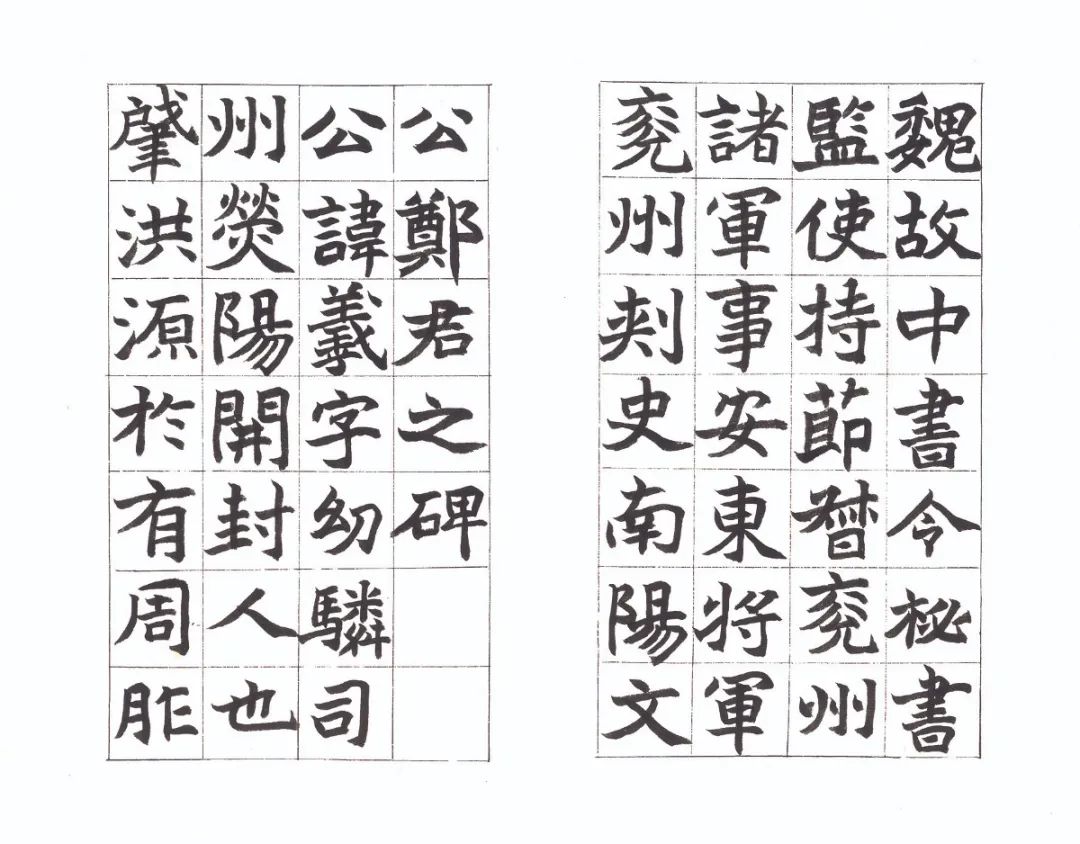 魏故中書令秘書
監使持節督兖州
諸軍事安東將軍
兖州刾史南陽文
公鄭君之碑
公諱羲字幼驎司
州熒陽開封人也
肈洪源於有周胙